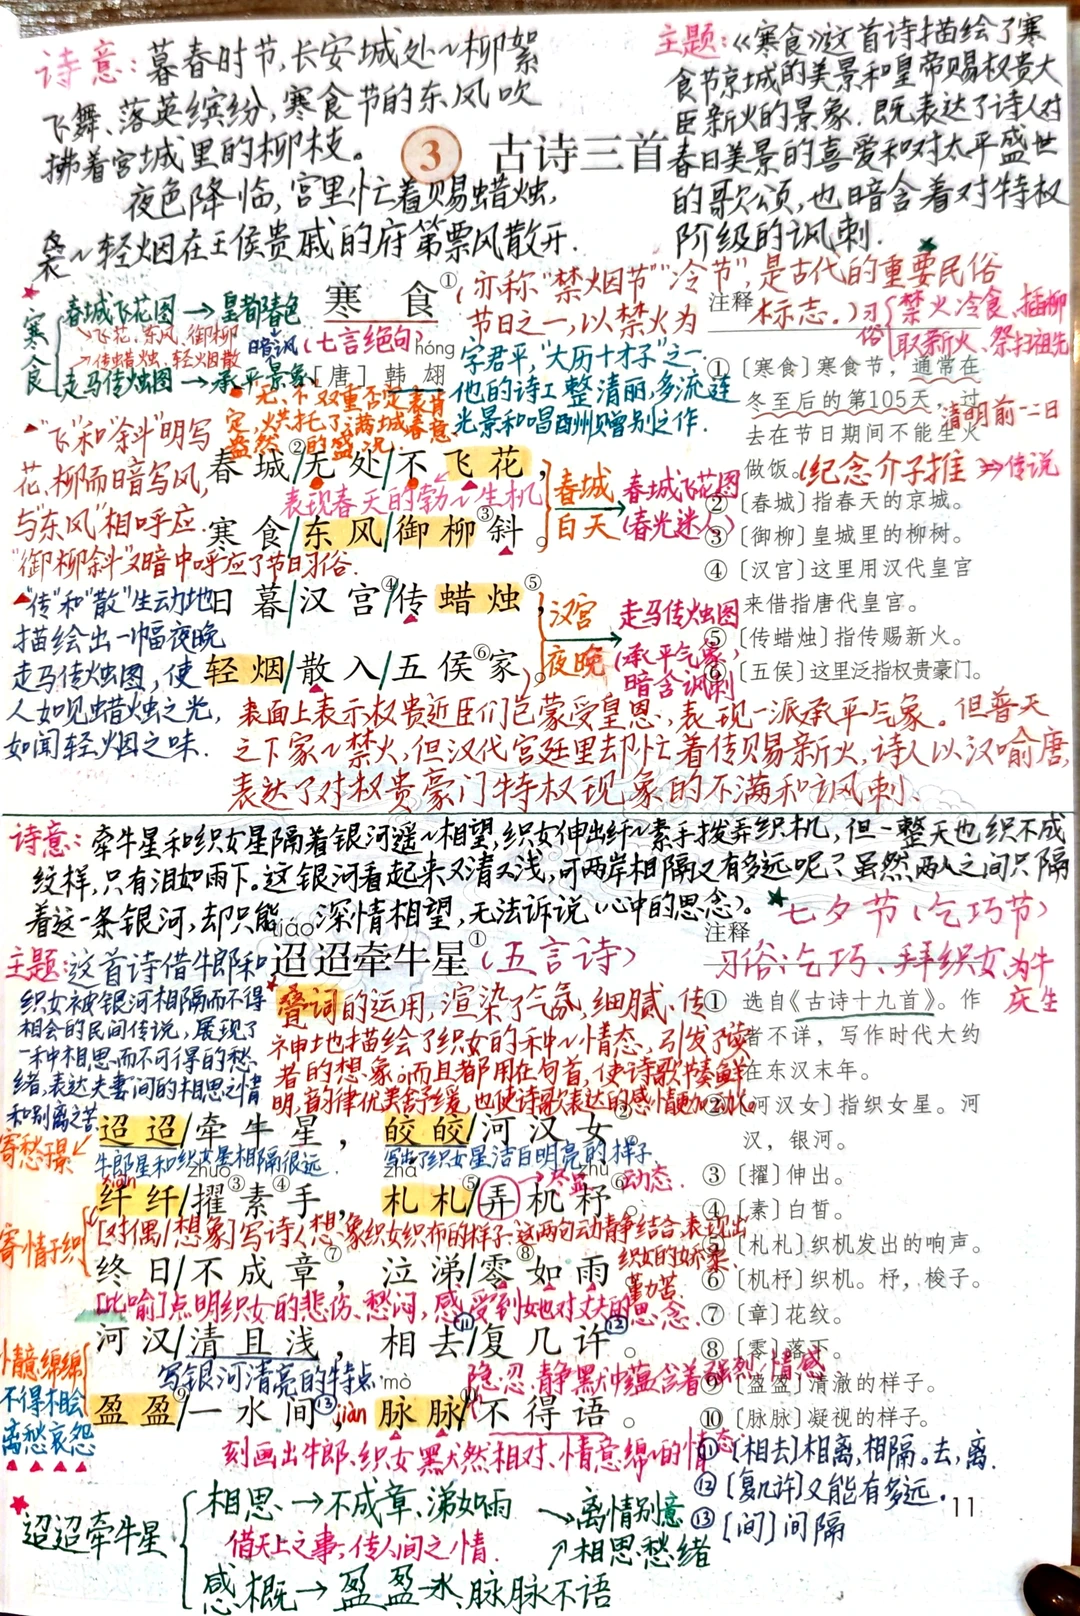 诗意：暮春时节，长安城处~柳絮
飞舞、落英缤纷，寒食节的东风吹
拂着宫城里的柳枝。
夜色降临，宫里忙着赐蜡烛，
袅~轻烟在王侯贵戚的府第票风散开.
主题：《寒食》这首诗描绘了寒
食节京城的美景和皇帝赐权贵大
臣新火的景象. 既表达了诗人对
春日美景的喜爱和对太平盛世
的歌颂，也暗含着对特权
阶级的讽刺.
3 古诗三首
寒食①
(亦称“禁烟节”“冷节”，是古代的重要民俗
节日之一，以禁火为
标志。)
习俗
禁火冷食、插柳
取新火、祭扫祖先
寒食
春城飞花图→皇都春色
飞花、东风、御柳
传蜡烛、轻火因散
走马传烛图→承平景象
暗讽
(七言绝句)
hóng
[唐] 韩翃
字君平，“大历十才子”之一.
他的诗工整清丽，多流连
光景和唱酬赠别之作.
无、不 双重否定表肯
定，烘托了满城春意
盎然的盛况
“飞”和“斜”明写
花、柳而暗写风，
与“东风”相呼应.
“御柳斜”又暗中呼应了节日习俗.
“传”和“散”生动地
描绘出一幅夜晚
走马传烛图，使
人如见蜡烛之光，
如闻轻烟之味.
春城②/无处/不飞花，
表现春天的勃~生机
寒食/东风/御柳③斜。
日暮/汉宫④/传蜡烛⑤，
轻烟/散入/五侯⑥家。
春城
白天
春城飞花图
(春光迷人)
汉宫
夜晚
走马传烛图
(承平气象，
暗含讽刺)
表面上表示权贵近臣们包蒙受皇恩，表现一派承平气象。但普天
之下家~禁火，但汉代宫廷里却忙着传赐新火，诗人以汉喻唐，
表达了对权贵豪门特权现象的不满和讽刺.
注释
①〔寒食〕寒食节，通常在
冬至后的第105天，过
清明前一二日
去在节日期间不能生火
做饭。
(纪念介子推 ⇒传说
②〔春城〕指春天的京城。
③〔御柳〕皇城里的柳树。
④〔汉宫〕这里用汉代皇宫
来借指唐代皇宫。
⑤〔传蜡烛〕指传赐新火。
⑥〔五侯〕这里泛指权贵豪门。
诗意：牵牛星和织女星隔着银河遥~相望，织女伸出纤~素手拨弄织机，但一整天也织不成
纹样，只有泪如雨下。这银河看起来又清又浅，可两岸相隔又有多远呢？虽然两人之间只隔
着这一条银河，却只能~深情相望，无法诉说(心中的思念)。
七夕节(乞巧节)
习俗：乞巧、拜织女、为牛
庆生
tiáo
迢迢牵牛星①(五言诗)
主题：这首诗借牛郎和
织女被银河相隔而不得
相会的民间传说，展现了
一种相思而不可得的愁
绪，表达夫妻间的相思之情
和别离之苦.
叠词的运用，渲染了气氛，细腻、传
神地描绘了织女的种~情态，引发了读
者的想象。而且都用在句首，使诗歌节奏鲜
明，音律优美舒缓，也使诗歌表达的感情更加动人。
寄愁于景
迢迢/牵牛星，皎皎/河汉女②。
牛郎星和织女星相隔很远.
写出了织女星洁白明亮的样子.
xiān zhuó zhá zhù
纤纤/擢③素④手，札札⑤/弄机杼⑥。
动态.
寄情于织
[对偶/想象]写诗人想象织女织布的样子.这两句动静结合，表现出
织女的娇柔、
勤苦.
终日/不成章⑦，泣涕/零⑧如雨。
[比喻]点明织女的悲伤、愁闷，感受到她对丈夫的思念.
河汉/清且浅，相去⑪/复几许⑫。
写银河清亮的特点.
隐忍、静默中蕴含着强烈情感
情意绵绵
不得相会
离愁哀怨
mò
盈盈⑨/一水间⑬，jiàn 脉脉⑩/不得语。
刻画出牛郎、织女默然相对、情意绵~的情态
注释
① 选自《古诗十九首》。作
者不详，写作时代大约
在东汉末年。
②〔河汉女〕指织女星。河
汉，银河。
③〔擢〕伸出。
④〔素〕白皙。
⑤〔札札〕织机发出的响声。
⑥〔机杼〕织机。杼，梭子。
⑦〔章〕花纹。
⑧〔零〕落下。
⑨〔盈盈〕清澈的样子。
⑩〔脉脉〕凝视的样子。
⑪[相去]相离，相隔。去，离.
⑫[复几许]又能有多远.
⑬[间]间隔
迢迢牵牛星
相思→不成章、涕如雨
借天上之事，传人间之情.
感概→盈盈一水、脉脉不语
离情别意
相思愁绪
11